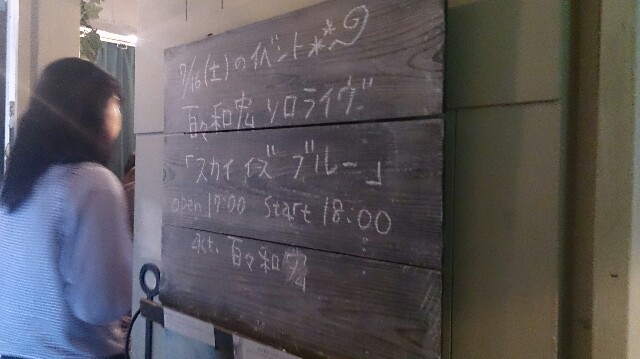 7/16(土)のイベント
百々和宏 ソロライヴ
「スカイ イズ ブルー」
open 17:00 start 18:00
act. 百々和宏